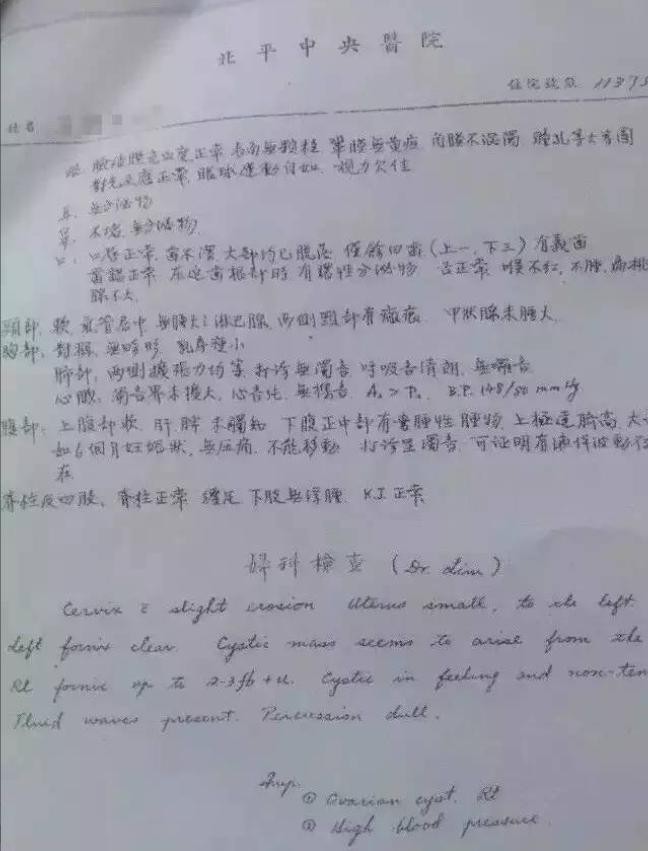 北平中央醫院
姓名 住院號數 11373
眼. 瞼结膜充血度正常 表面無顆粒 鞏膜無黄疸 角膜不混濁 瞳孔等大育圓
對光反應正常, 眼球運動自如, 視力欠佳
耳. 無分泌物
鼻. 不堵, 無分泌物
口. 口唇正常, 齒不潔, 大部均已脱落 僅餘四齒 (上一, 下三) 有義齒
齒齦正常 在這齒根部時有膿性分泌物 舌正常 喉不紅, 不腫, 扁桃
腺不大.
頸部. 軟 氣管居中, 無腫大之淋巴腺, 两側頸部有瘢痕. 甲狀腺未腫大.
胸部: 對稱, 無畸形 乳房種小
肺部: 两側擴張力均等 打診無濁音 呼吸音清朗, 無囉音
心臟: 濁音界未擴大, 心音纯, 無雜音 A₂ > P₂. B.P. 148/80 mmHg.
腹部: 上腹部軟. 肝脾未觸知 下腹正中部有囊腫性腫物, 上極達臍高, 大
如6個月妊娠狀, 無压痛, 不能移動 打诊显濁音, 可証明有液体波動存
在.
脊柱及四肢, 脊柱正常 纏足, 下肢無浮腫. K.J. 正常
婦科檢查 (Dr. Lim)
Cervix c̄ slight erosion Uterus small, to the left.
Left fornix clear. Cystic mass seems to arise from the
Rt fornix up to 2-3fb + u. Cystic in feeling and non-ten
Fluid waves present. Percussion dull.
Imp.
① Ovarian cyst. Rt
② High blood pressure.